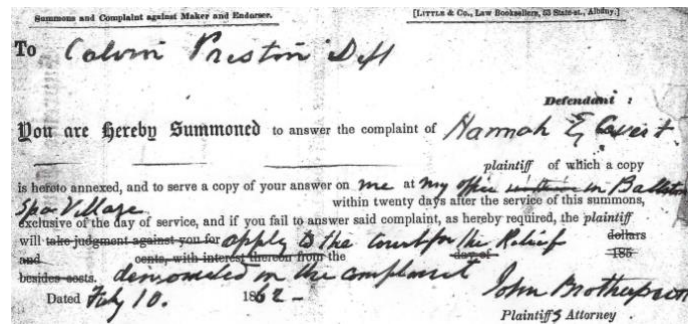 Summons and Complaint against Maker and Endorser. [LITTLE & Co., Law Booksellers, 53 State-st., Albany.]
To Calvin Preston Deft
Defendant :
You are Hereby Summoned to answer the complaint of Hannah E
plaintiff of which a copy
is hereto annexed, and to serve a copy of your answer on me at my office in Ballston
Spa Village within twenty days after the service of this summons,
exclusive of the day of service, and if you fail to answer said complaint, as hereby required, the plaintiff
will take judgment against you for apply to the court for the Relief dollars
and cents, with interest thereon from the day of 185
besides costs. demanded in the complaint
Dated 10. 1862 - John
Plaintiffs Attorney .